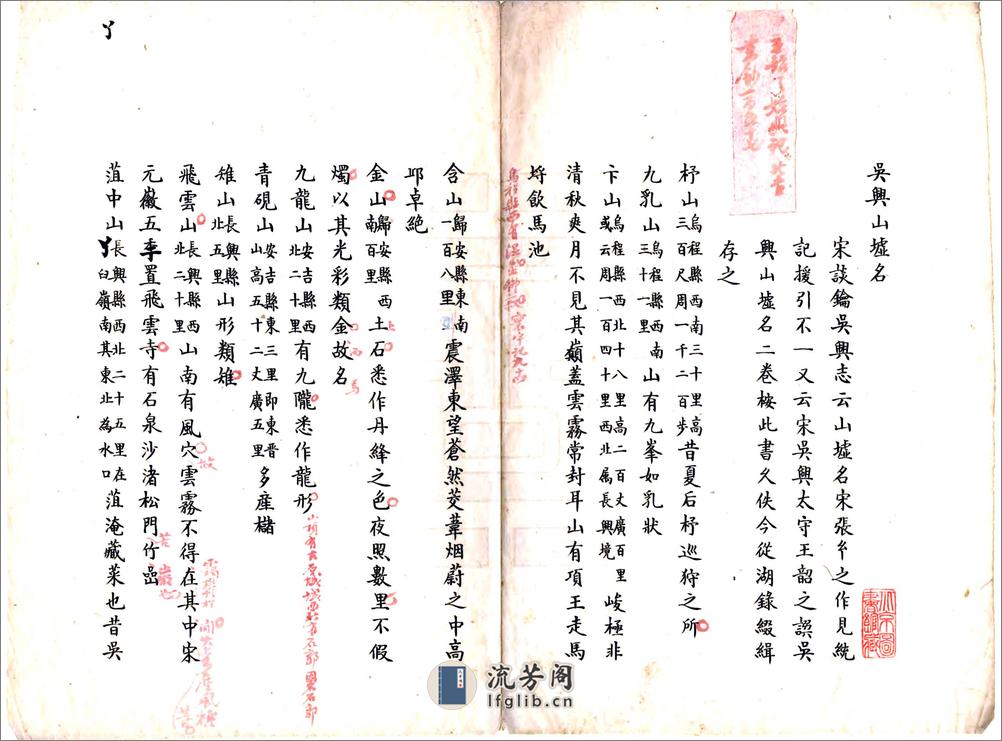 吳興山墟名
宋談鑰吳興志云山墟名宋張㐱之作見統
記援引不一又云宋吳興太守王韶之譔吳
興山墟名二卷桉此書久佚今從湖錄綴緝
存之
杼山烏程縣西南三十里高三百尺周一千二百步昔夏后杼巡狩之所
九乳山烏程縣西南三十一里山有九峯如乳狀
卞山烏程縣西北十八里高二百丈廣百里或云周一百四十里西北属長興境峻極非
清秋爽月不見其嶺蓋雲霧常封耳山有項王走馬
埒飲馬池
烏程縣西有溫 寰宇記九十四
含山歸安縣東南一百八里震澤東望蒼然茭葦烟蔚之中高
邱卓絶
金山歸安縣西南百里土石悉作丹絳之色夜照數里不假
燭以其光彩類金故名
九龍山安吉縣西北二十里有九隴悉作龍形
山頂有古 城城西北有石郭
青硯山安吉縣東三里即東晋山高五十二丈廣五里多産櫧
雉山長興縣北五里山形類雉
飛雲山長興縣西北二十里山南有風穴雲霧不得在其中宋
故
元徽五年置飛雲寺有石泉沙渚松門竹嵒
苦 巖也
菹中山長興縣西北二十五里在丫臼嶺南其東北為水口菹淹藏菜也昔吳
丫
流芳阁
lfglib.cn